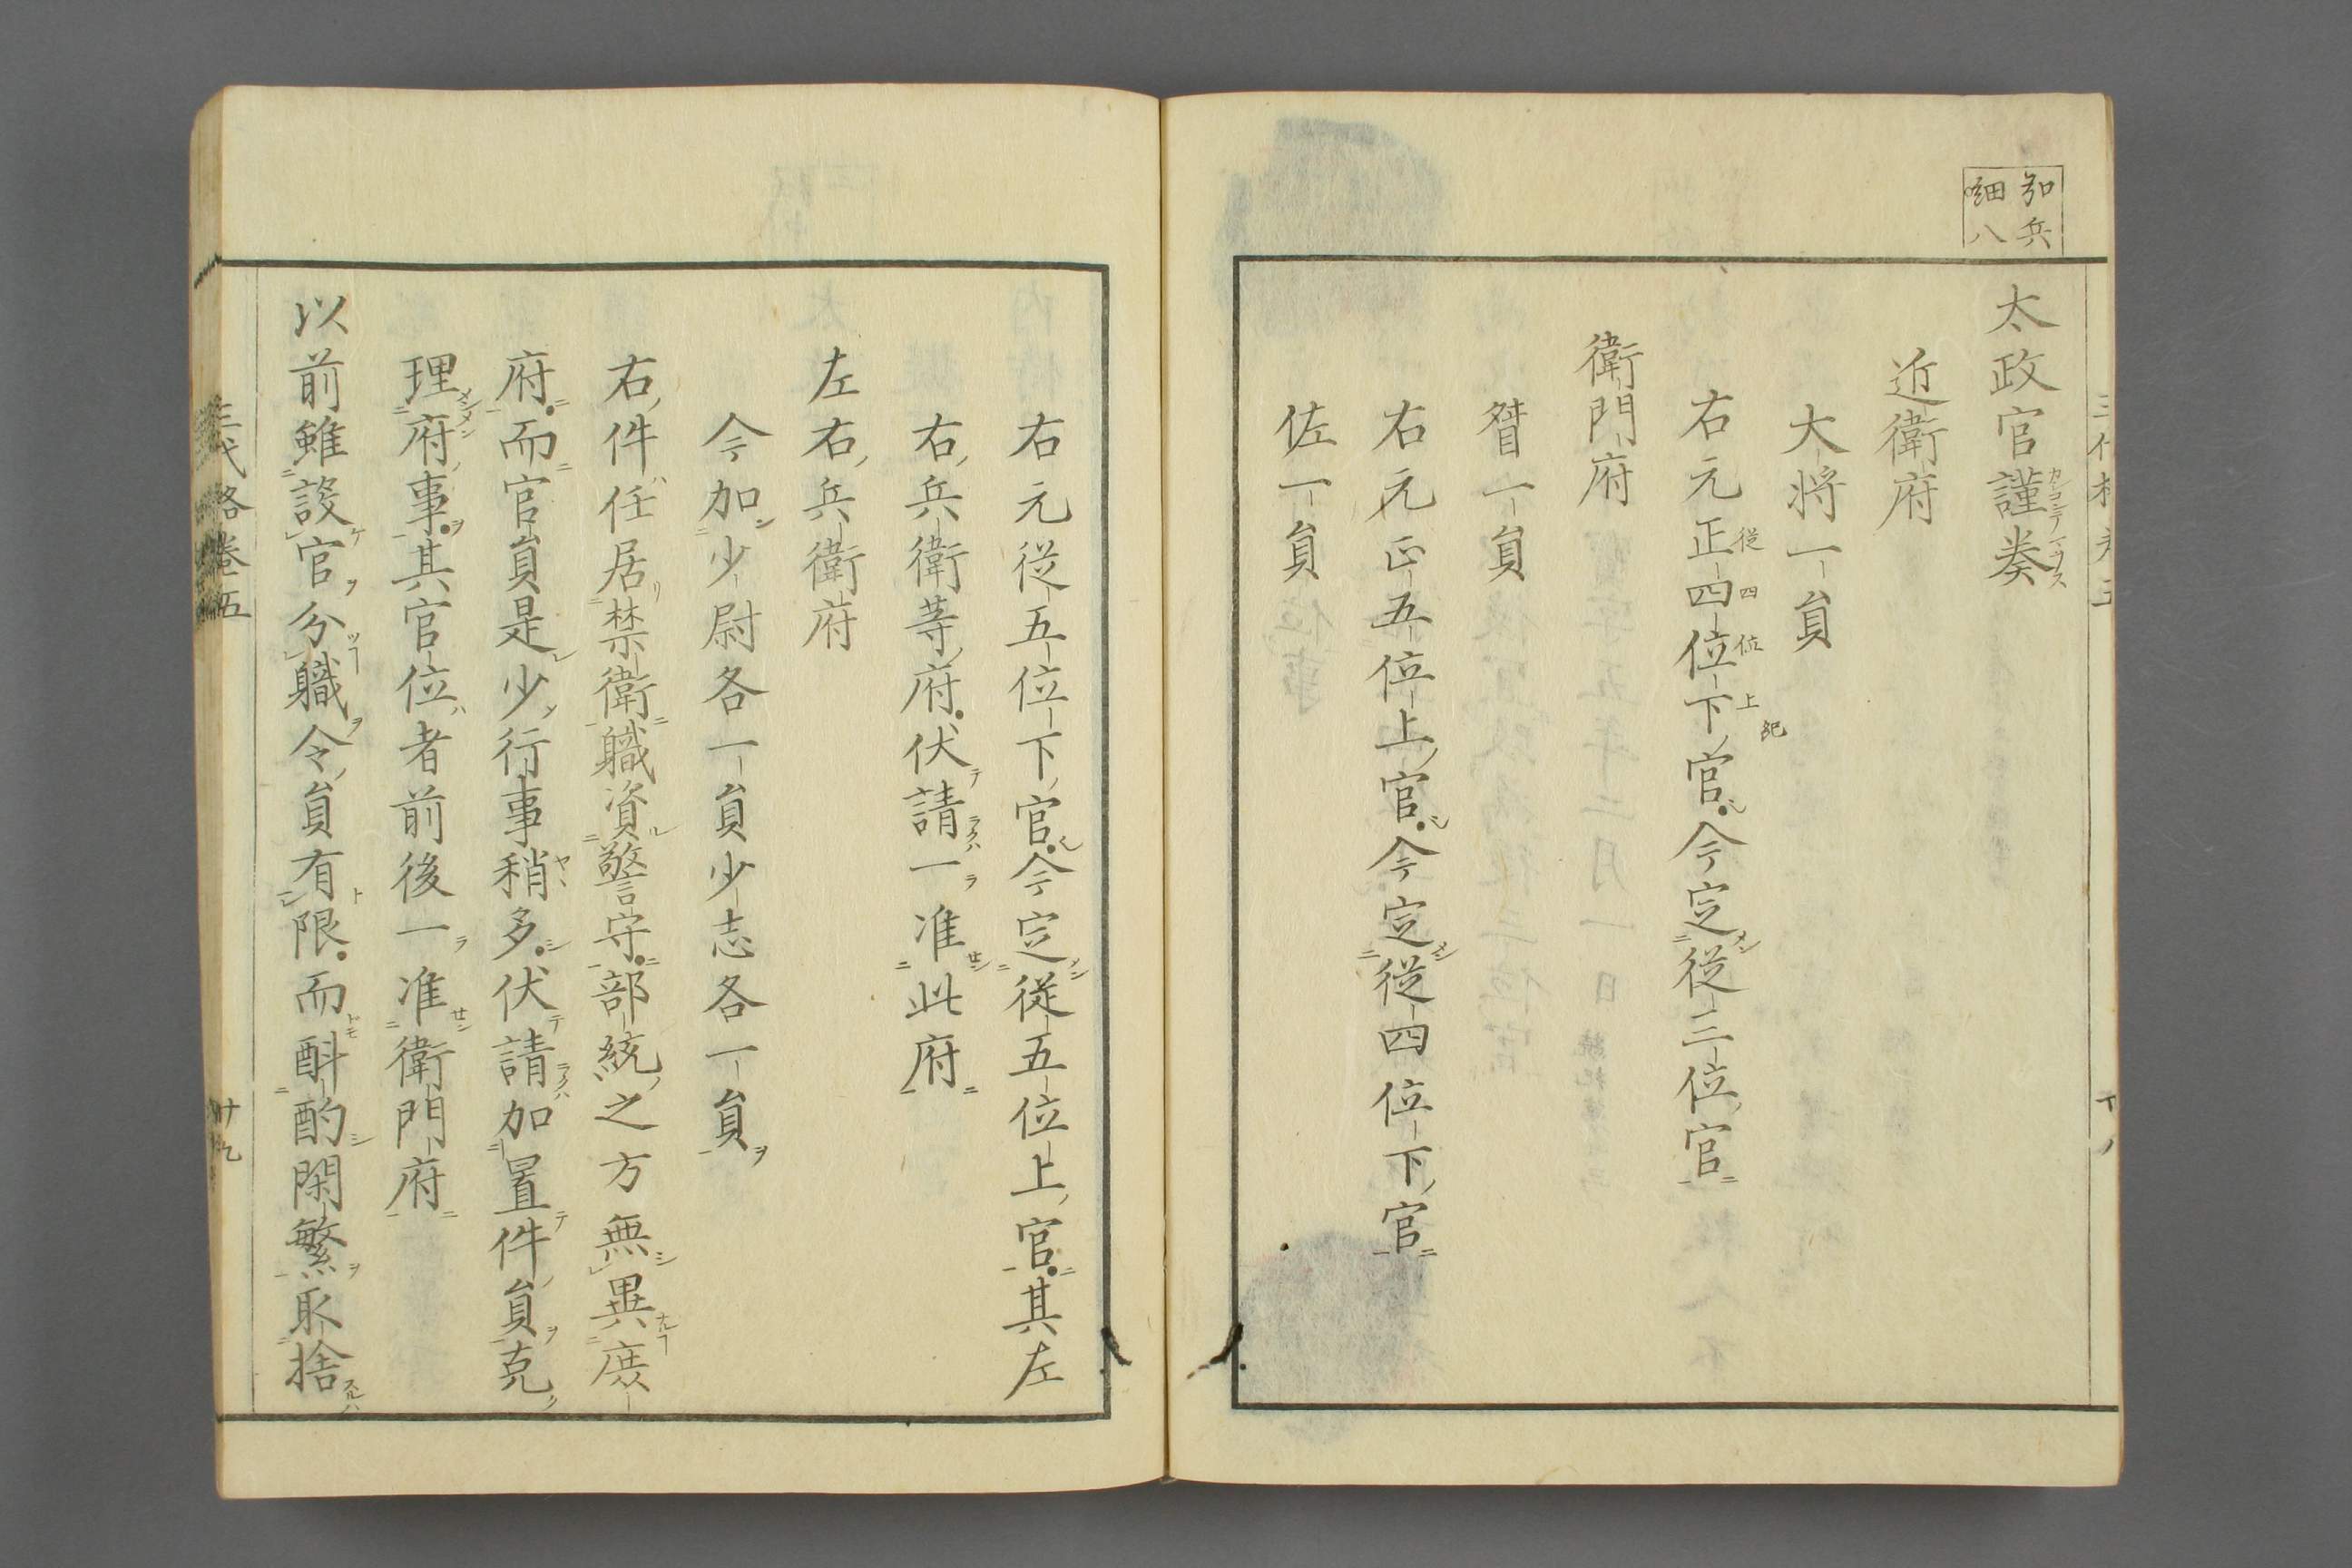 太政官謹奏
近衛府
大将一員
右元正四位下官今定従三位官
従四位上紀
衛門府
督一員
右元正五位上官今定従四位下官
佐一員
右元従五位下官今定従五位上官其左
右兵衛等府伏請一准此府
左右兵衛府
今加少尉各一員少志各一員
右件任居禁衛職資警守部統之方無異廣
府而官員是少行事稍多伏請加置件員克
理府事其官位者前後一准衛門府
以前雖設官分職令員有限而斟酌閑繁取捨
三代格巻五